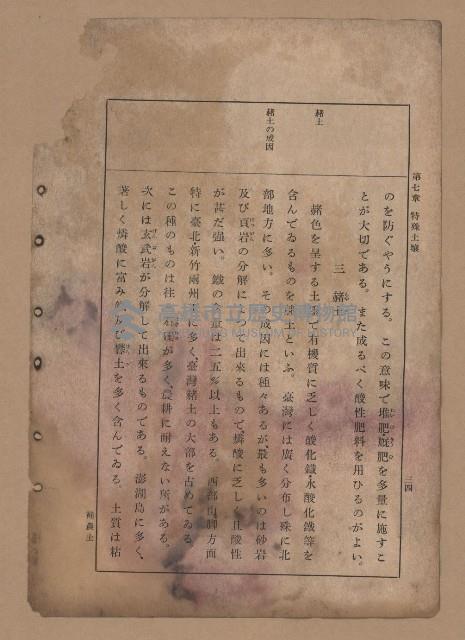 第七章 特殊土壤
三四
のを防ぐやうにする。この意味で堆肥廐肥を多量に施すこ
とが大切である。また成るべく酸性肥料を用ひるのがよい。
三 赭土
赭土
赭色を呈する土壤で有機質に乏しく酸化鐵水酸化鐵等を
含んでゐるものを赭土といふ。臺灣には廣く分布し殊に北
赭土の成因
部地方に多い。その成因には種々あるが、最も多いのは砂岩
及び頁岩の分解によつて出來るもので、燐酸に乏しく且酸性
が甚だ强い。鐵の含量は二五%以上もある。西部山脚方面
特に臺北新竹兩州下に多く、臺灣赭土の大部を占めてゐる。
この種のものは往々石礫が多く、農耕に耐えない所がある。
次には玄武岩が分解して出來るものである。澎湖島に多く、
著しく燐酸に富み 礬土を多く含んでゐる。土質は粘
高雄市立歷史博物館
KAOHSIUNG MUSEUM OF HISTORY